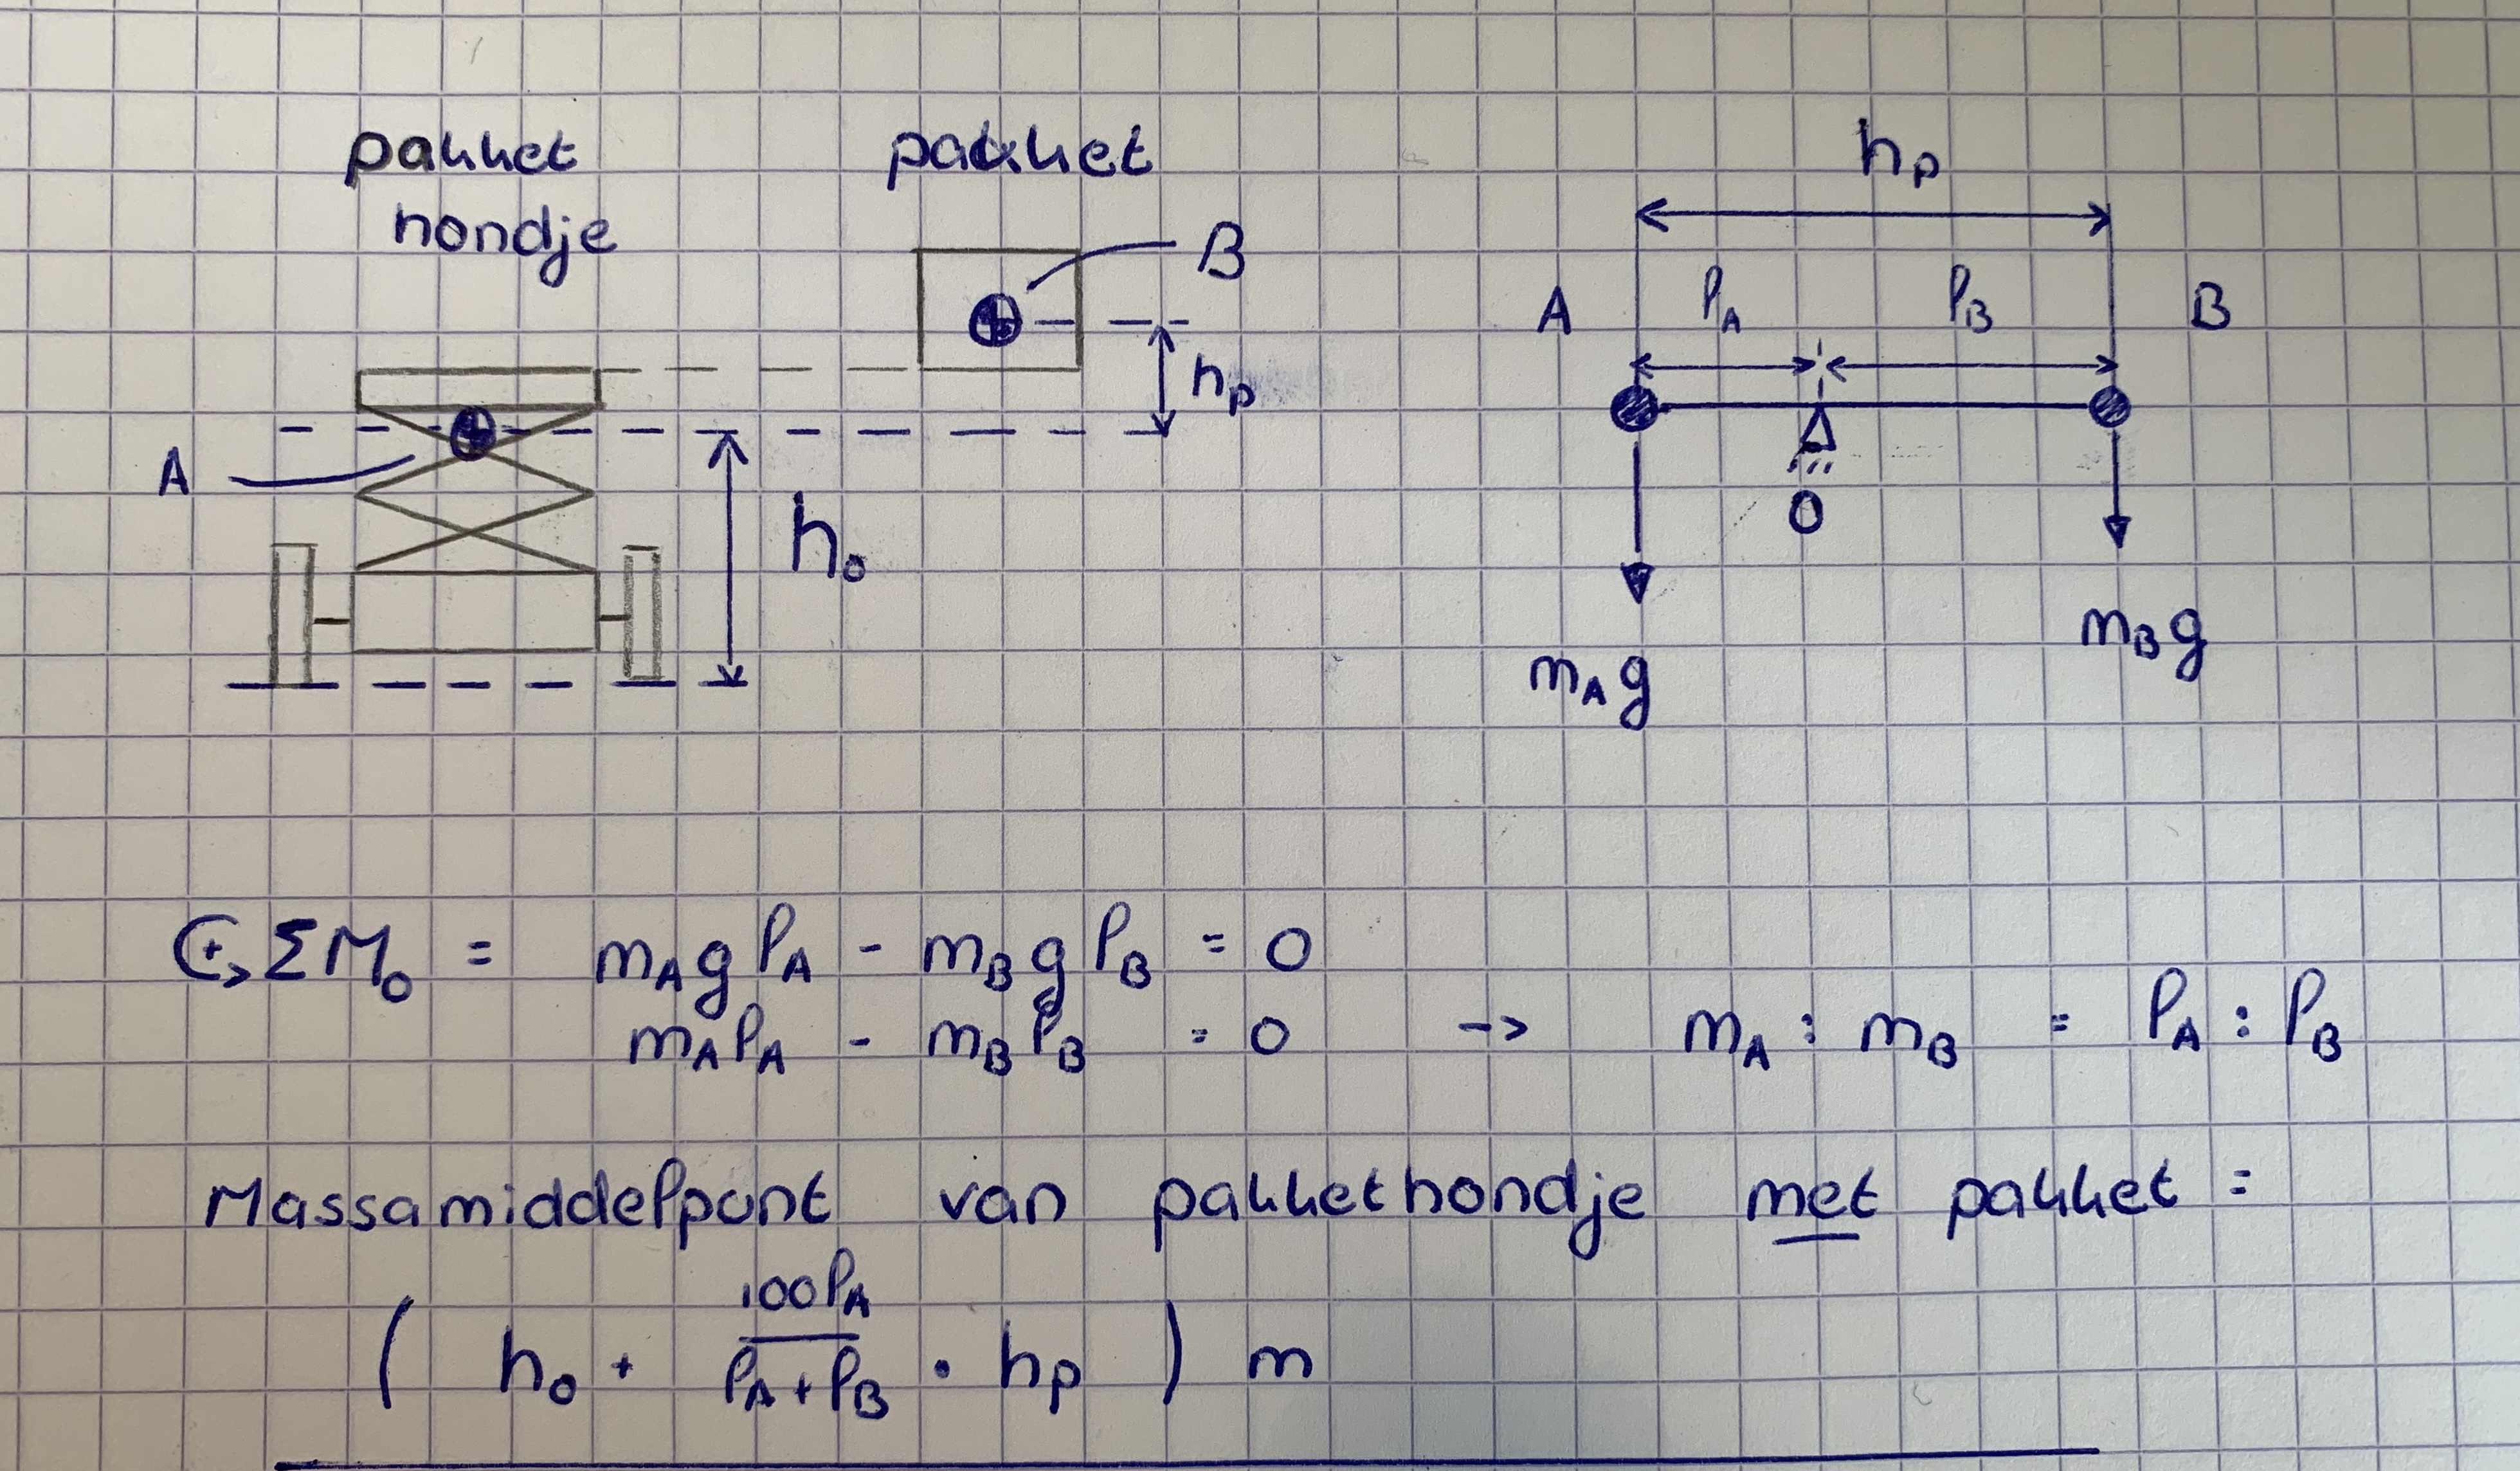 pakket
hondje
pakket
hp
B
A
lA
lB
B
hp
A
h0
O
mAg
mBg
(+ ΣMo = mAglA - mBglB = 0
mAlA - mBlB = 0 -> mA : mB = lA : lB
Massamiddelpunt van pakkethondje met pakket =
( h0 + 100lA / lA + lB · hp ) m